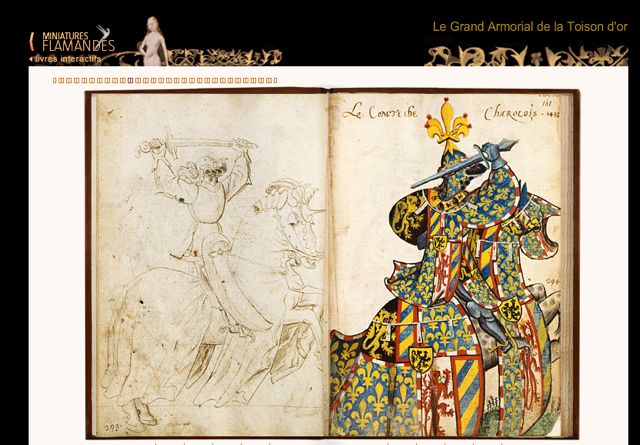 Le Grand Armorial de la Toison d'or
MINIATURES
FLAMANDES
livres interactifs
Le Comte de Charolois · 1433
294
293.